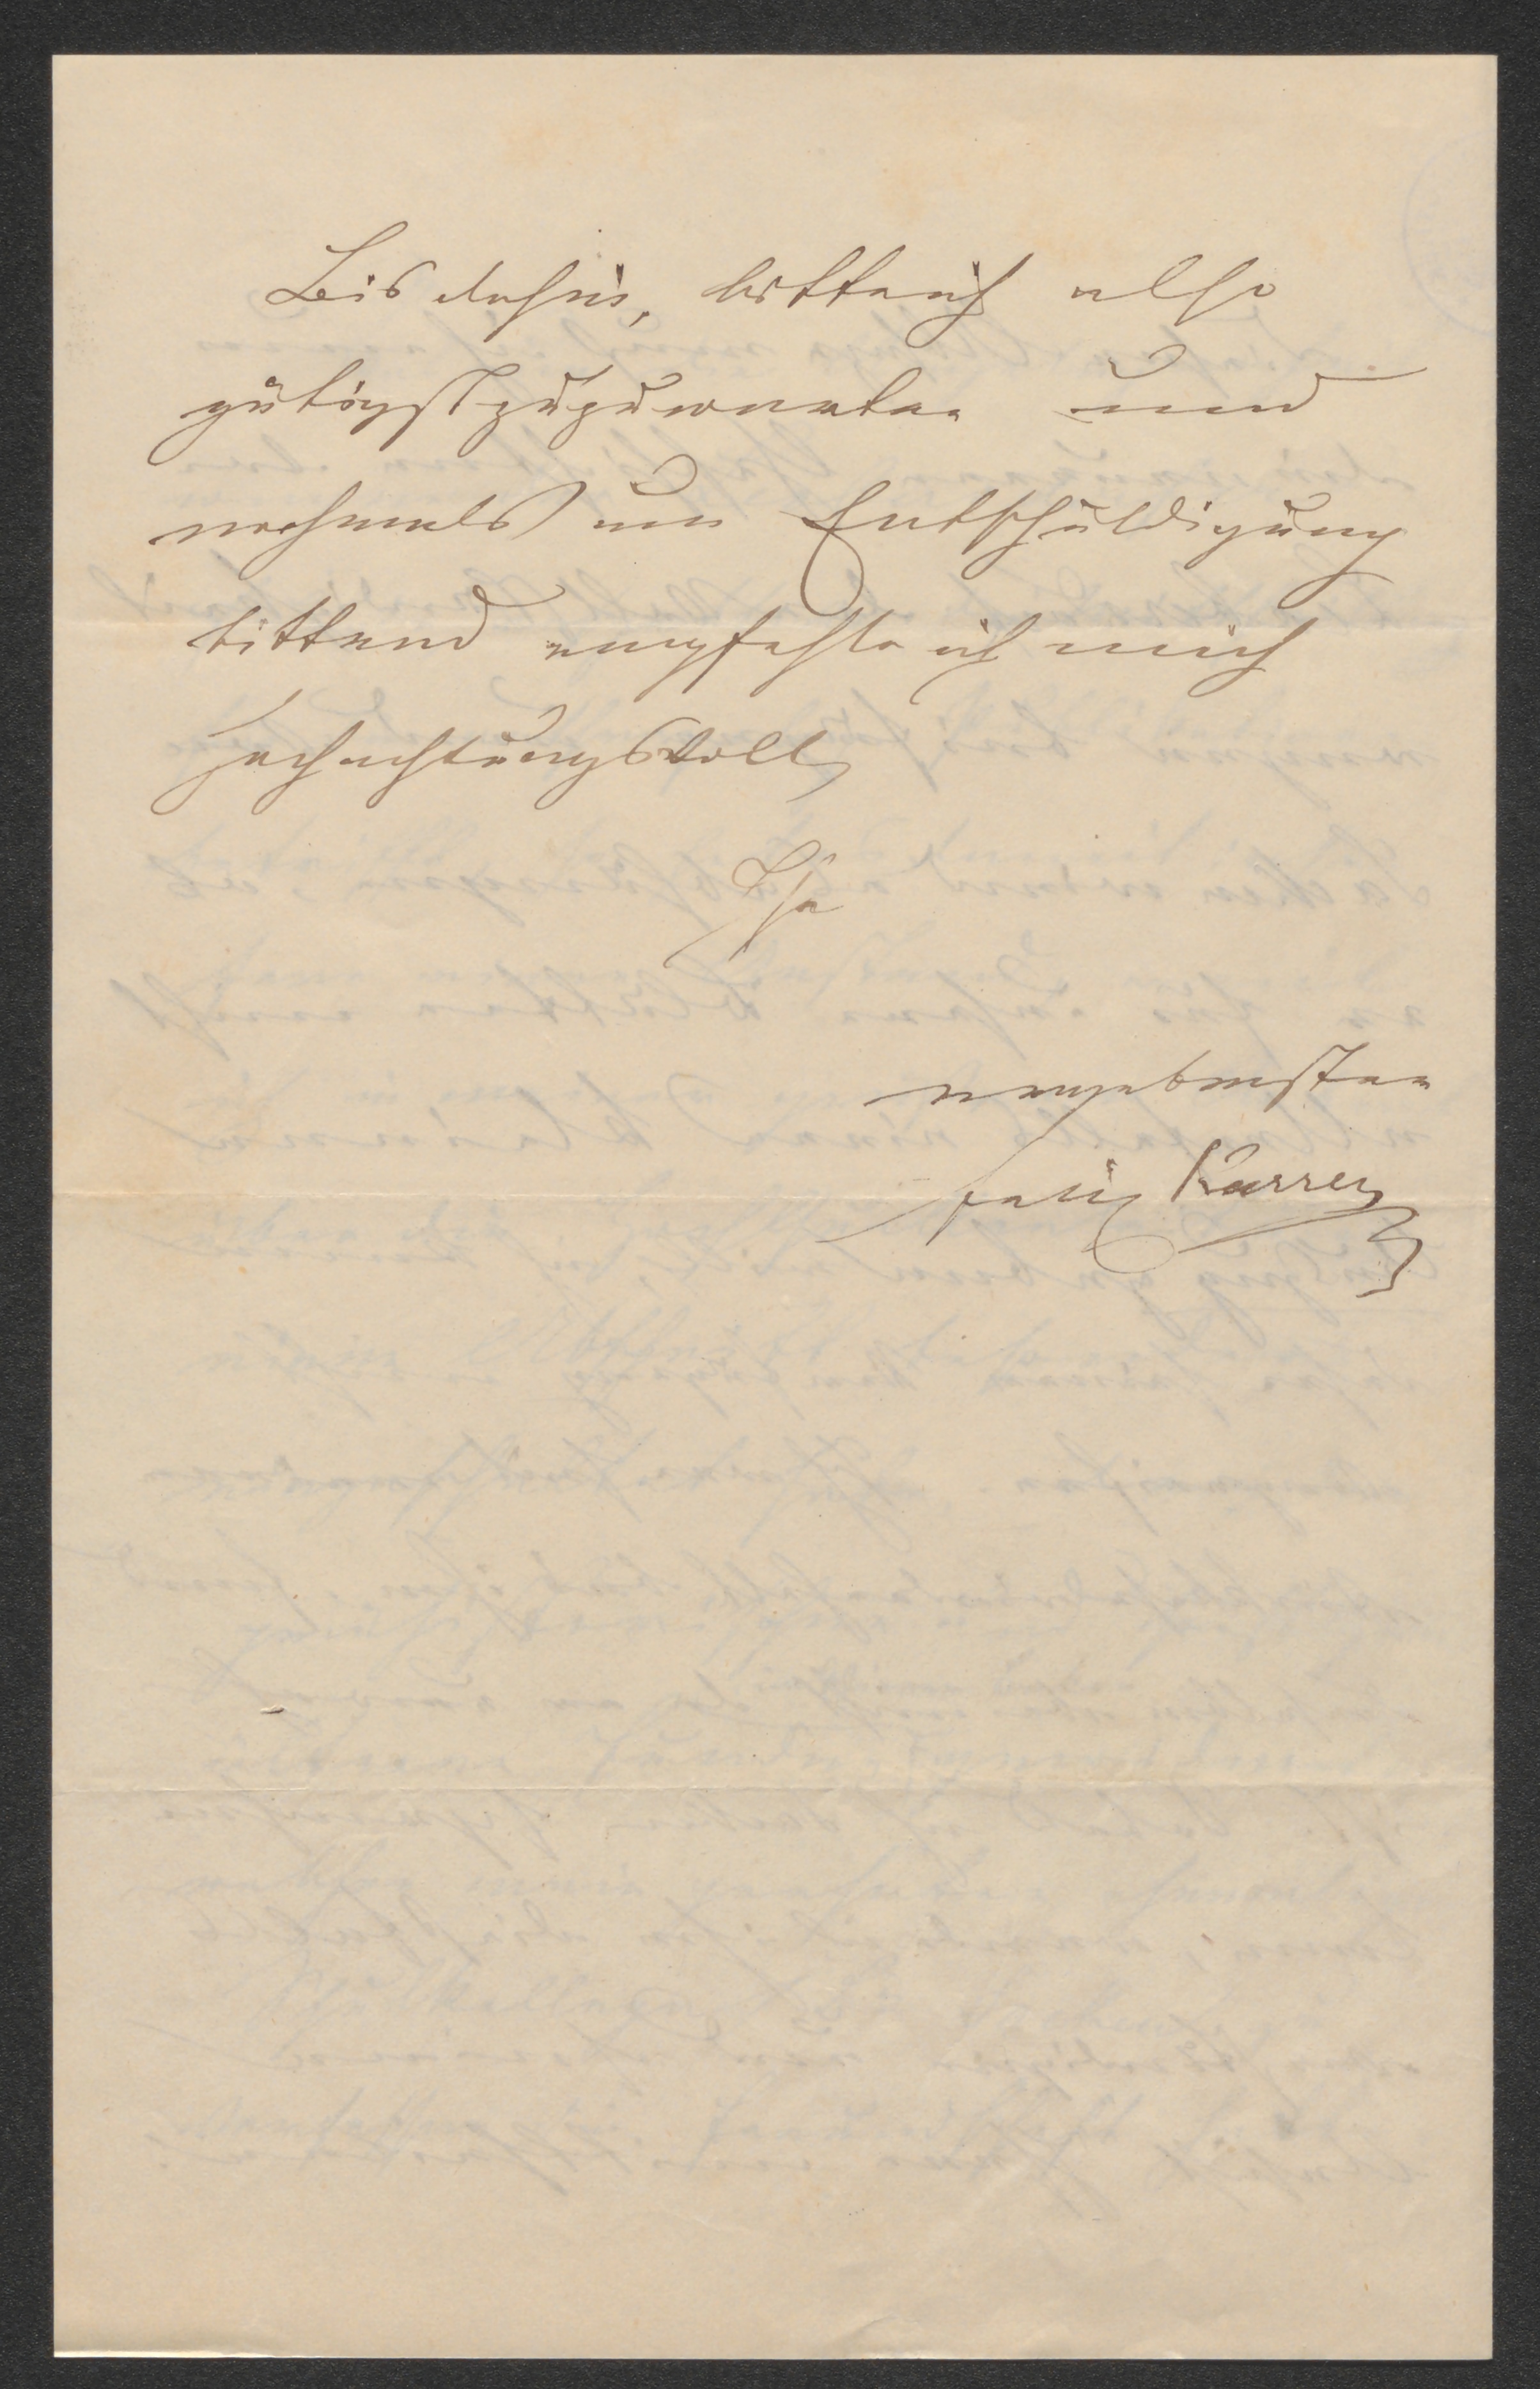 Bis dahin, bitte ich also
gütigst zuzuwarten und
nochmals um Entschuldigung
bittend empfehle ich mich
hochachtungsvoll
Ihr
ergebenster
Felix Karrer